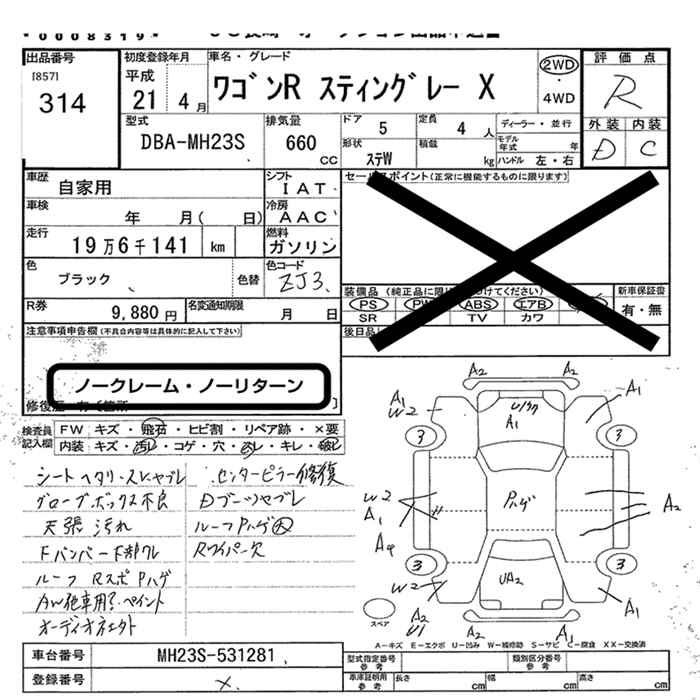 00008319
出品番号
[857]
314
初度登録年月
平成
21 4 月
車名・グレード
ワゴンR スティングレー X
2WD
・
4WD
評価点
R
外装 内装
D C
型式
DBA-MH23S
排気量
660
cc
ドア
5
定員
4 人
形状
ステW
積載
kg
ディーラー・並行
モデル
年式 年
ハンドル 左・右
車歴
自家用
シフト
IAT
車検
年 月( 日)
冷房
AAC
走行
19万6千141 km
燃料
ガソリン
色
ブラック
色替
色コード
ZJ3
R券
9,880円
名変通知期限
月 日
セールスポイント(正常に機能するものに限ります)
装備品
PS PW ABS エアB
SR TV カワ
新車保証書
有・無
後日品
注意事項申告欄(不具合内容等は具体的に記入して下さい)
ノークレーム・ノーリターン
検査員
記入欄
FW キズ・飛石・ヒビ割・リペア跡・×要
内装 キズ・汚レ・コゲ・穴・スレ・キレ・破レ
シートヘタリ・スレ・ヤブレ
グローブボックス不良
天張汚れ
Fバンパー下部ワレ
ルーフ RスポPハゲ
AW他車用?・ペイント
オーディオ欠
センターピラー修復
Dブーツヤブレ
ルーフPハゲ大
Rワイパー欠
A2
A1
W2
U1
A1
A1
3
3
W2
A1
A4
Pハゲ
A2
3
3
W2
UA2
A2
U1
A1
A1
スペア
A2
A-キズ E-エクボ U-凹み W-補修跡 S-サビ C-腐食 XX-交換済
車台番号
MH23S-531281
登録番号
×
型式指定番号
参考
類別区分番号
参考
車庫証明用
参考
長さ cm 幅 cm 高さ cm